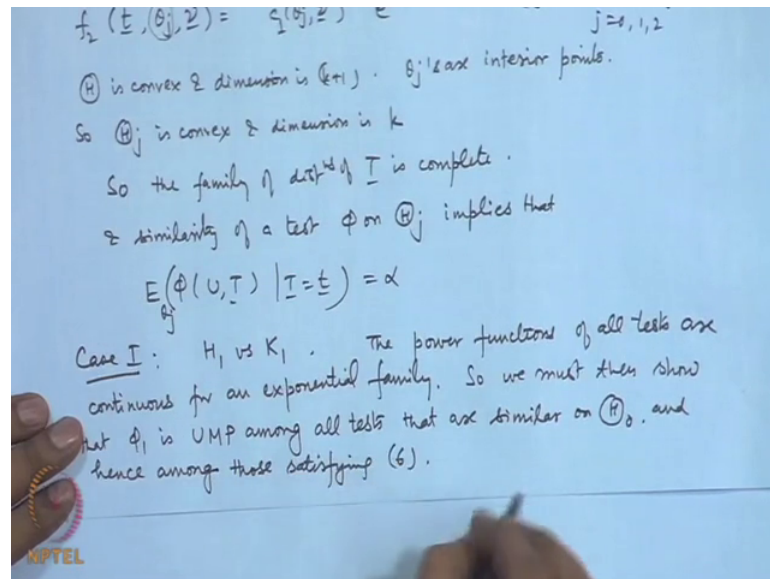 f₂ (t, θj, ν) = q(θj, ν) e
j=0, 1, 2
Ⓗ is convex & dimension is (k+1). θj's are interior points.
So Ⓗj is convex & dimension is k
So the family of distⁿˢ of T is complete.
& similarity of a test ϕ on Ⓗj implies that
E_θj (ϕ(U, T) | T = t) = α
Case I : H₁ vs K₁ . The power functions of all tests are
continuous for an exponential family. So we must then show
that ϕ₁ is UMP among all tests that are similar on Ⓗ₀, and
hence among those satisfying (6).
NPTEL